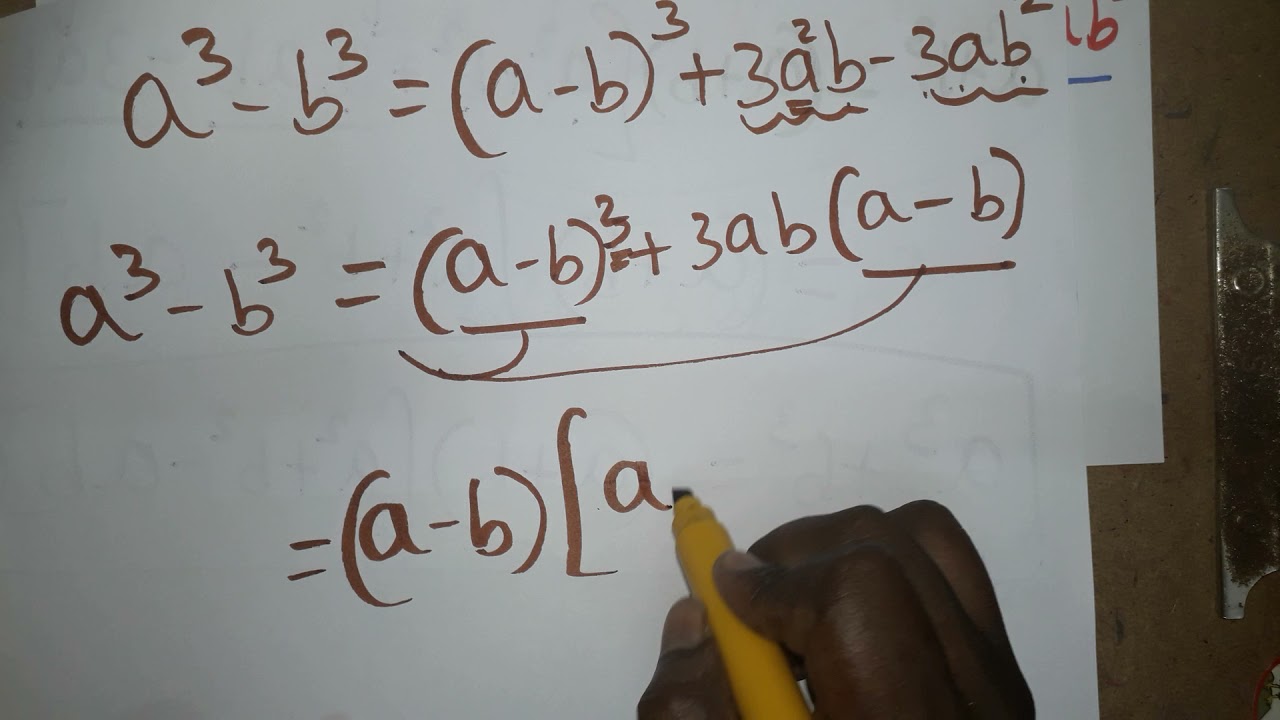 a³ - b³ = (a - b)³ + 3a²b - 3ab²
a³ - b³ = (a - b)³ + 3ab(a - b)
= (a - b) [a